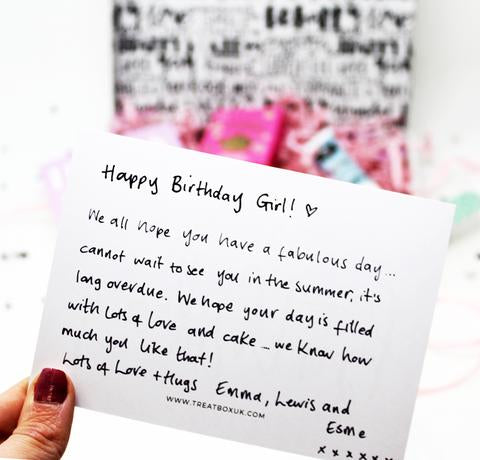 Happy Birthday Girl! ♡
We all hope you have a fabulous day...
cannot wait to see you in the summer, it's
long overdue. We hope your day is filled
with lots of love and cake... we know how
much you like that!
Lots of Love + Hugs Emma, Lewis and
Esme
x x x x x x
WWW.TREATBOXUK.COM